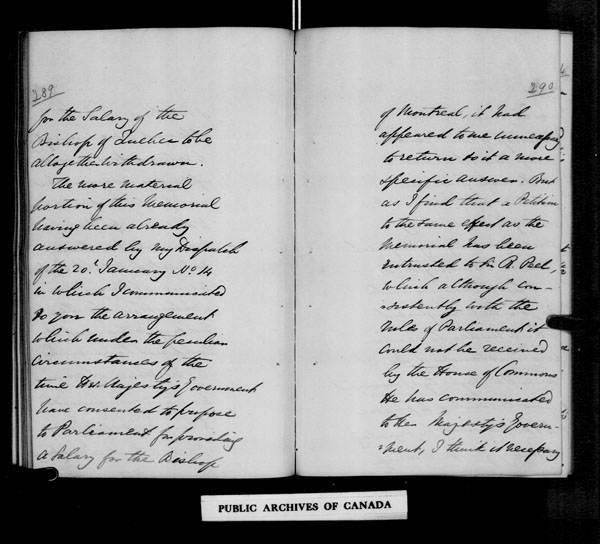 289
for the Salary of the
Bishop of Quebec to be
altogether withdrawn.
The more material
portion of this Memorial
having been already
answered by my Despatch
of the 20th January No 14
in which I communicated
to you the arrangement
which under the peculiar
circumstances of the
time Her Majesty's Government
have consented to propose
to Parliament for providing
a Salary for the Bishop
290
of Montreal, it had
appeared to me unnecessary
to return to it a more
specific answer. But
as I find that a Petition
to the same effect as the
Memorial has been
entrusted to Sir R. Peel,
which although con-
-sistently with the
rules of Parliament it
could not be received
by the House of Commons
He has communicated
to Her Majesty's Govern-
-ment, I think it necessary
PUBLIC ARCHIVES OF CANADA